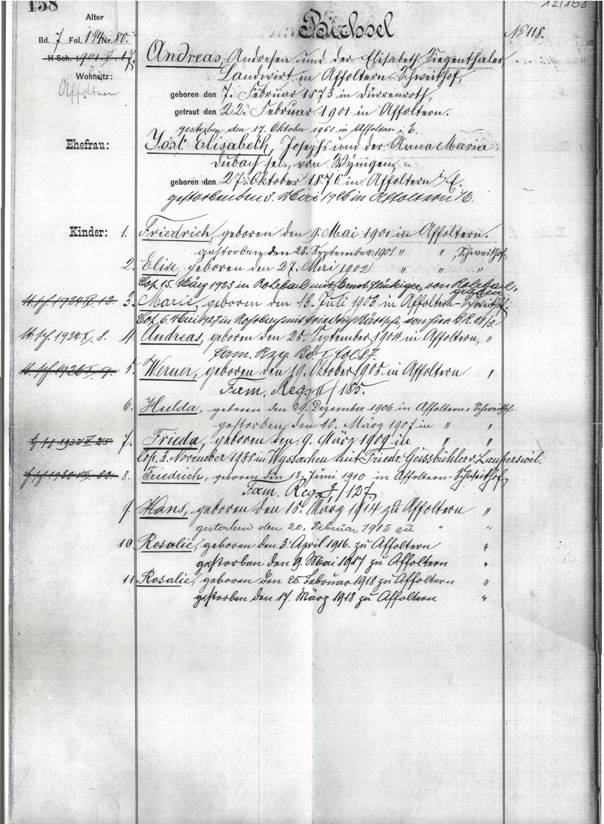 158
12/158
Bichsel
Nº 118.
Alter
Bd. 7 Fol. 194 Nr. 80.
Wohnsitz:
Affoltern
Andreas, Andresen und der Elisabeth Siegenthaler
Landwirt in Affoltern Schweithof,
geboren den 7. Februar 1873 in Dürrenroth,
getraut den 22. Februar 1901 in Affoltern.
gestorben den 17. Oktober in Affoltern i. E.
Ehefrau:
Jost Elisabeth, Josephs und der Anna Maria
Dubach sel., von Wynigen,
geboren den 27. Oktober 1876 in Affoltern i. E.
gestorben den Mai in Affoltern i/E.
Kinder:
1. Friedrich, geboren den 9. Mai 1901 in Affoltern.
gestorben den 28. September 1901 " " Schweithof.
2. Elise, geboren den 27. Mai 1902 " " "
Cop. 15. März 1923 in mit von
3. Marie, geboren den 13. Juli 1903 in Affoltern-Schweithof
Cop. 6. Mai 1927 in mit Friedrich von
4. Andreas, geboren den 25. September 1904 in Affoltern, "
Fam. Rzg.
5. Werner, geboren den 10. Oktober 1905 in Affoltern "
Fam. Reg. II/185.
6. Hulda, geboren den 29. Dezember 1906 in Affoltern Schweithof
gestorben den 10. März 1907 in " "
7. Frieda, geboren den 9. März 1909 in " "
Cop. 3. November 1935 in Wyssachen mit Friedr. Geissbühler v. Lauperswil.
8. Friedrich, geboren den 13. Juni 1910 in Affoltern-Schweithof
Fam. Reg. I/127
9. Hans, geboren den 16. März 1914 zu Affoltern "
gestorben den 20. Februar 1915 zu " "
10. Rosalie, geboren den 3. April 1916 zu Affoltern "
gestorben den 9. Mai 1917 zu Affoltern "
11. Rosalie, geboren den 25. Februar 1918 zu Affoltern "
gestorben den 17. März 1918 zu Affoltern "